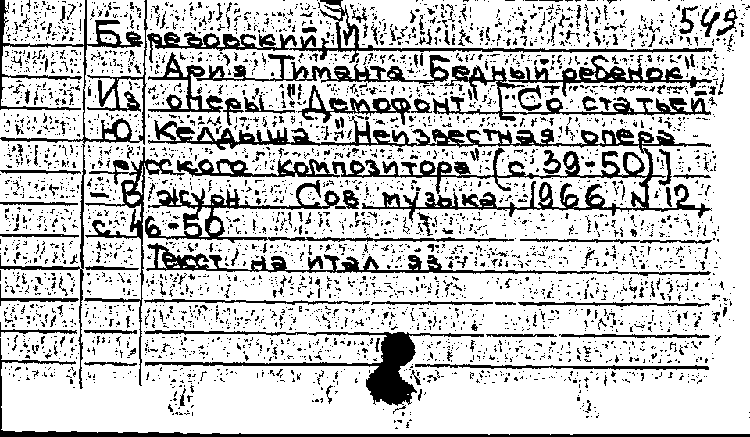 549
Березовский, М.
Ария Тиманта "Бедный ребенок",
Из оперы "Демофонт" [Со статьей
Ю. Келдыша "Неизвестная опера
русского композитора" (с. 39-50)]
- В журн.: Сов. музыка, 1966, N 12,
с. 46-50
Текст на итал. яз.